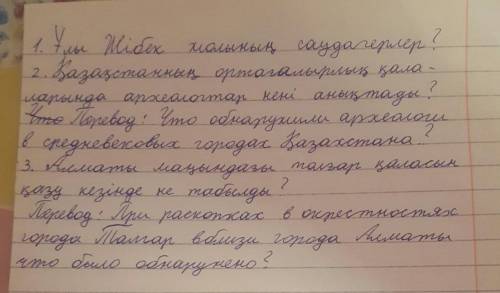 1. Ұлы Жібек жолының саудагерлер?
2. Қазақстанның ортағалырлық қала-
ларында археологтар нені анықтады?
Что Перевод: Что обнаружили археологи
в средневековых городах Қазахстана..?
3. Алматы маңындағы талғар қаласын
қазу кезінде не табылды?
Перевод: При раскопках в окрестностях
города Талгар вблизи города Алматы
что было обнарунено?